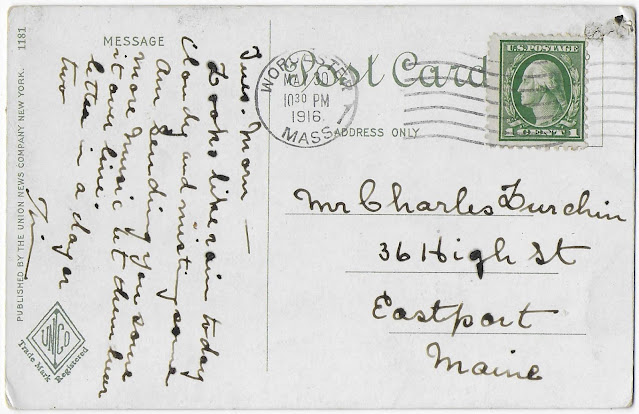 1181
PUBLISHED BY THE UNION NEWS COMPANY NEW YORK.
UNCO
Trade Mark Registered
MESSAGE
Tues. Morn —
Looks like rain today
Cloudy and misting some
Am sending you some
more music let them hear
it over line.
letter in a day or
two
Post Card
ADDRESS ONLY
WORCESTER
MAY 30
10 30 PM
1916
MASS
1
U.S. POSTAGE
1 CENT 1
Mr Charles
36 High St
Eastport
Maine